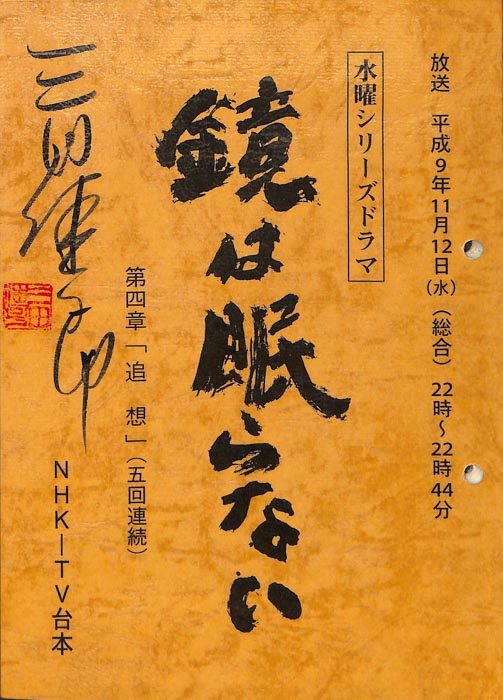 放送 平成9年11月12日(水)(総合) 22時〜22時44分
水曜シリーズドラマ
鏡は眠らない
第四章「追 想」(五回連続)
NHK-TV台本